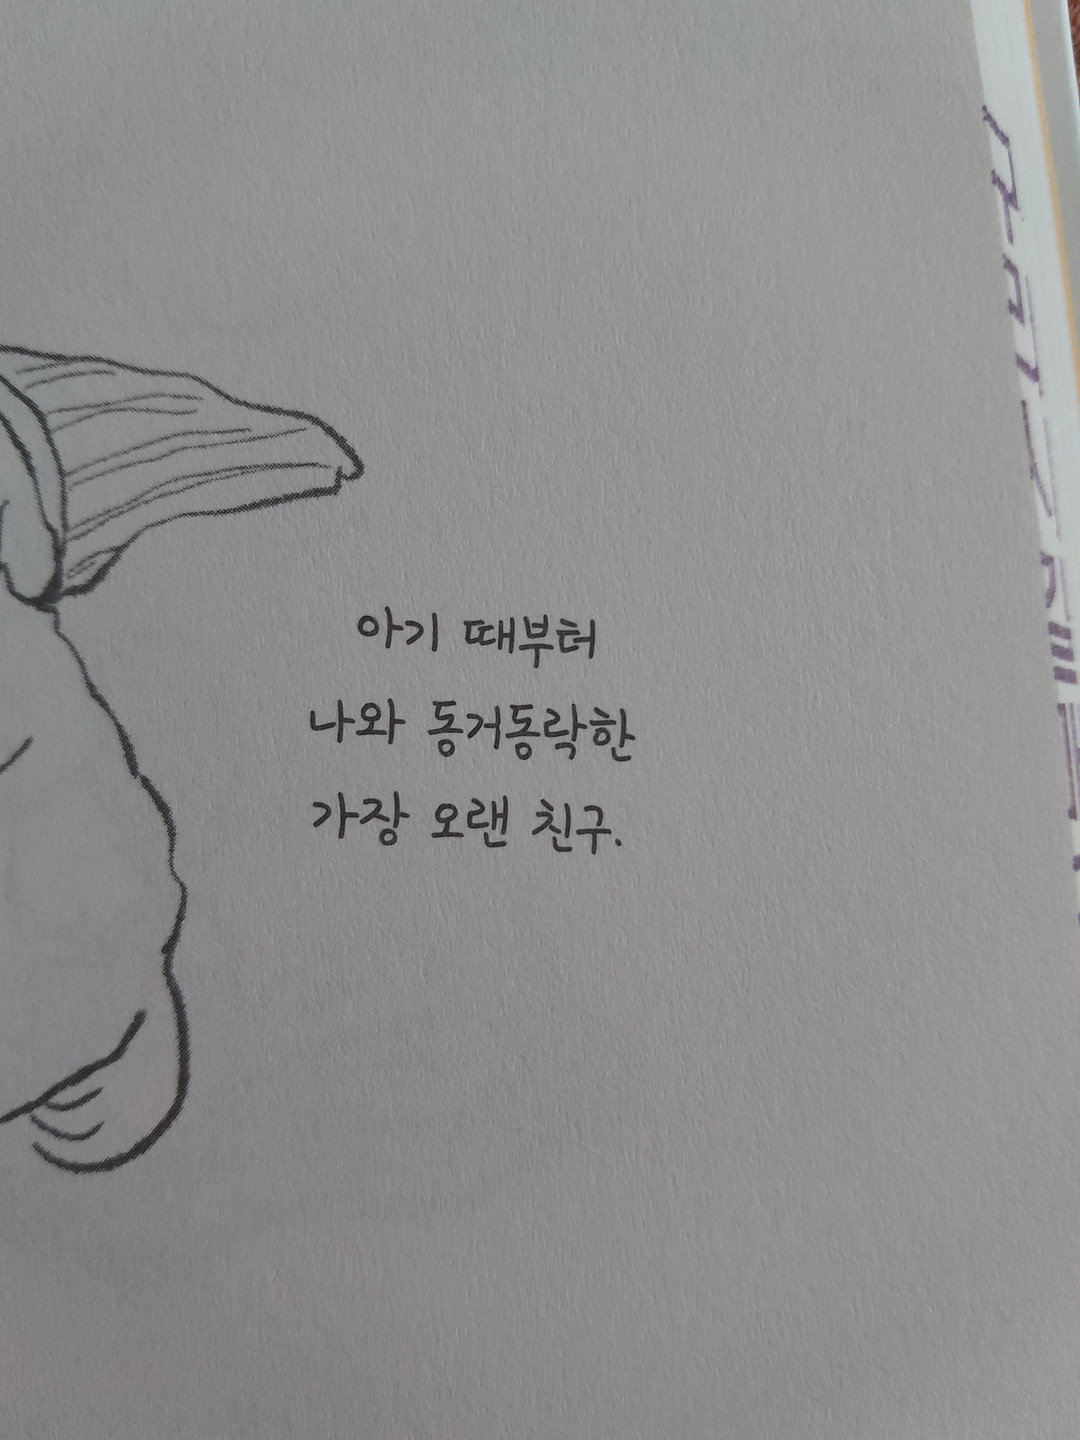 아기 때부터
나와 동거동락한
가장 오랜 친구.